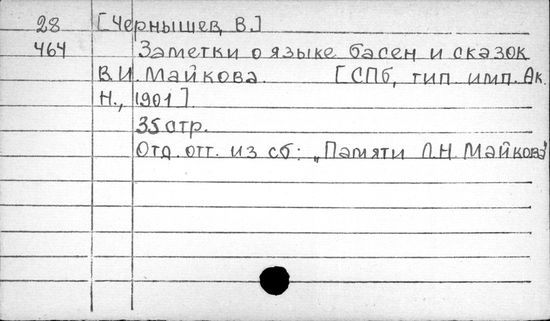 28 [Чернышев, В.]
464 Заметки о языке басен и сказок
В.И. Майкова. [СПб, тип. имп. Ак.
Н., 1901]
35 стр.
Отд. отт. из сб: „Памяти Л.Н. Майкова"